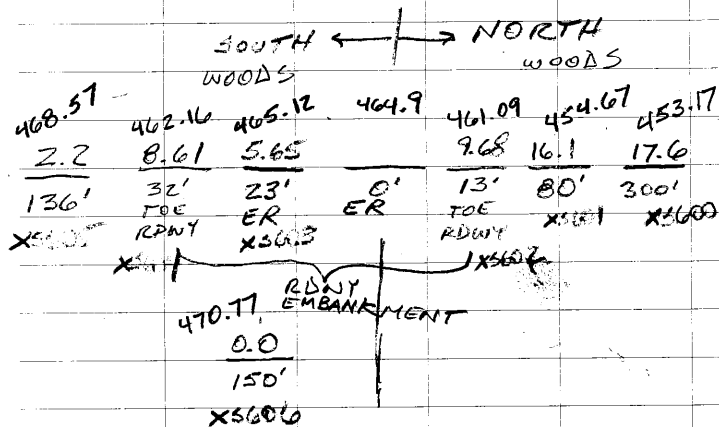 SOUTH ←|→ NORTH
WOODS WOODS
468.57 462.16 465.12 464.9 461.09 454.67 453.17
2.2 8.61 5.65 9.68 16.1 17.6
136' 32' 23' 0' 13' 80' 300'
TOE ER ER TOE
RDWY XS603 RDWY XS601 XS600
XS602
RDWY
EMBANKMENT
470.77
0.0
150'
XS606